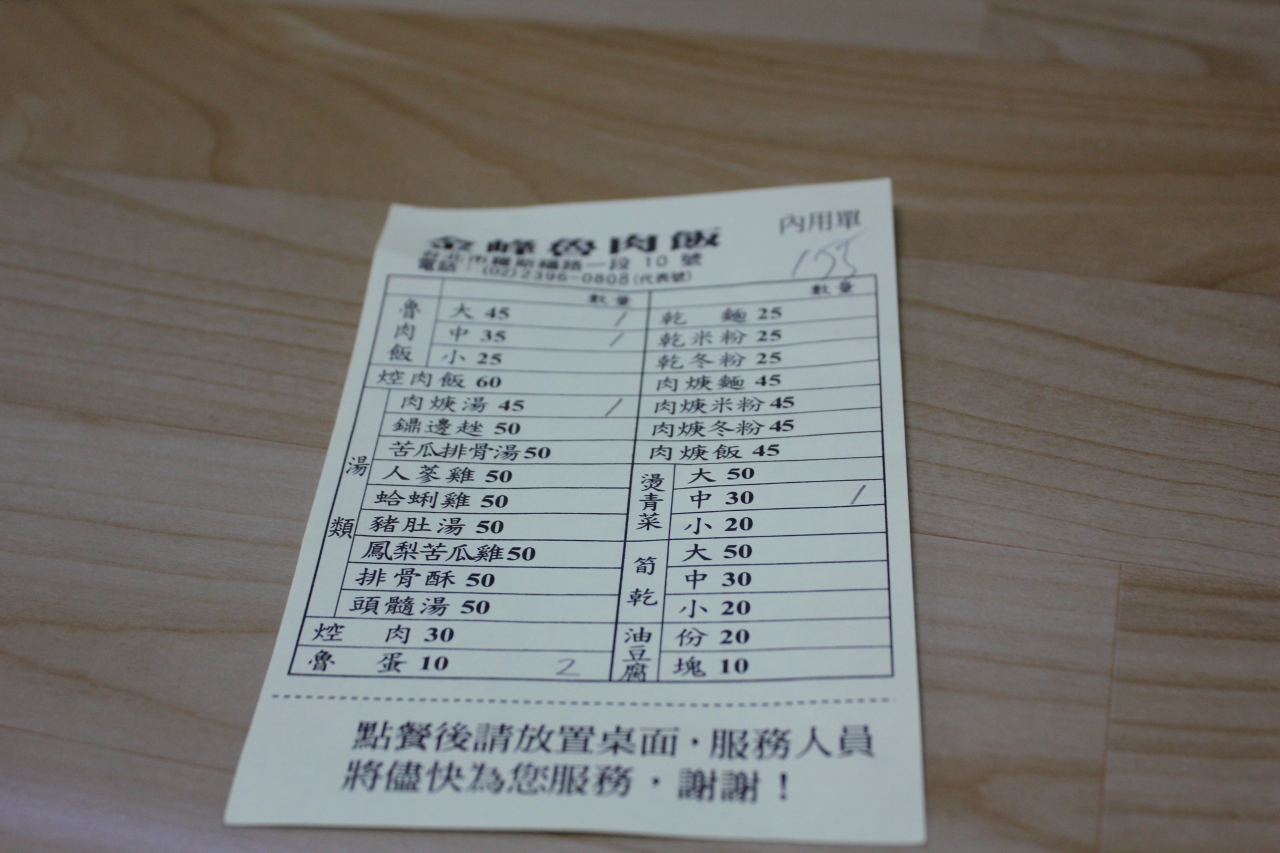 內用單
金峰魯肉飯
台北市羅斯福路一段 10 號
電話：(02)2396-0808(代表號)
155
數量
數量
魯肉飯
大 45 /
中 35 /
小 25
焢肉飯 60
湯類
肉焿湯 45 /
鼎邊趖 50
苦瓜排骨湯 50
人蔘雞 50
蛤蜊雞 50
豬肚湯 50
鳳梨苦瓜雞 50
排骨酥 50
頭髓湯 50
焢 肉 30
魯 蛋 10 2
乾 麵 25
乾米粉 25
乾冬粉 25
肉焿麵 45
肉焿米粉 45
肉焿冬粉 45
肉焿飯 45
燙青菜
大 50
中 30 /
小 20
筍乾
大 50
中 30
小 20
油豆腐
份 20
塊 10
點餐後請放置桌面，服務人員
將儘快為您服務，謝謝！